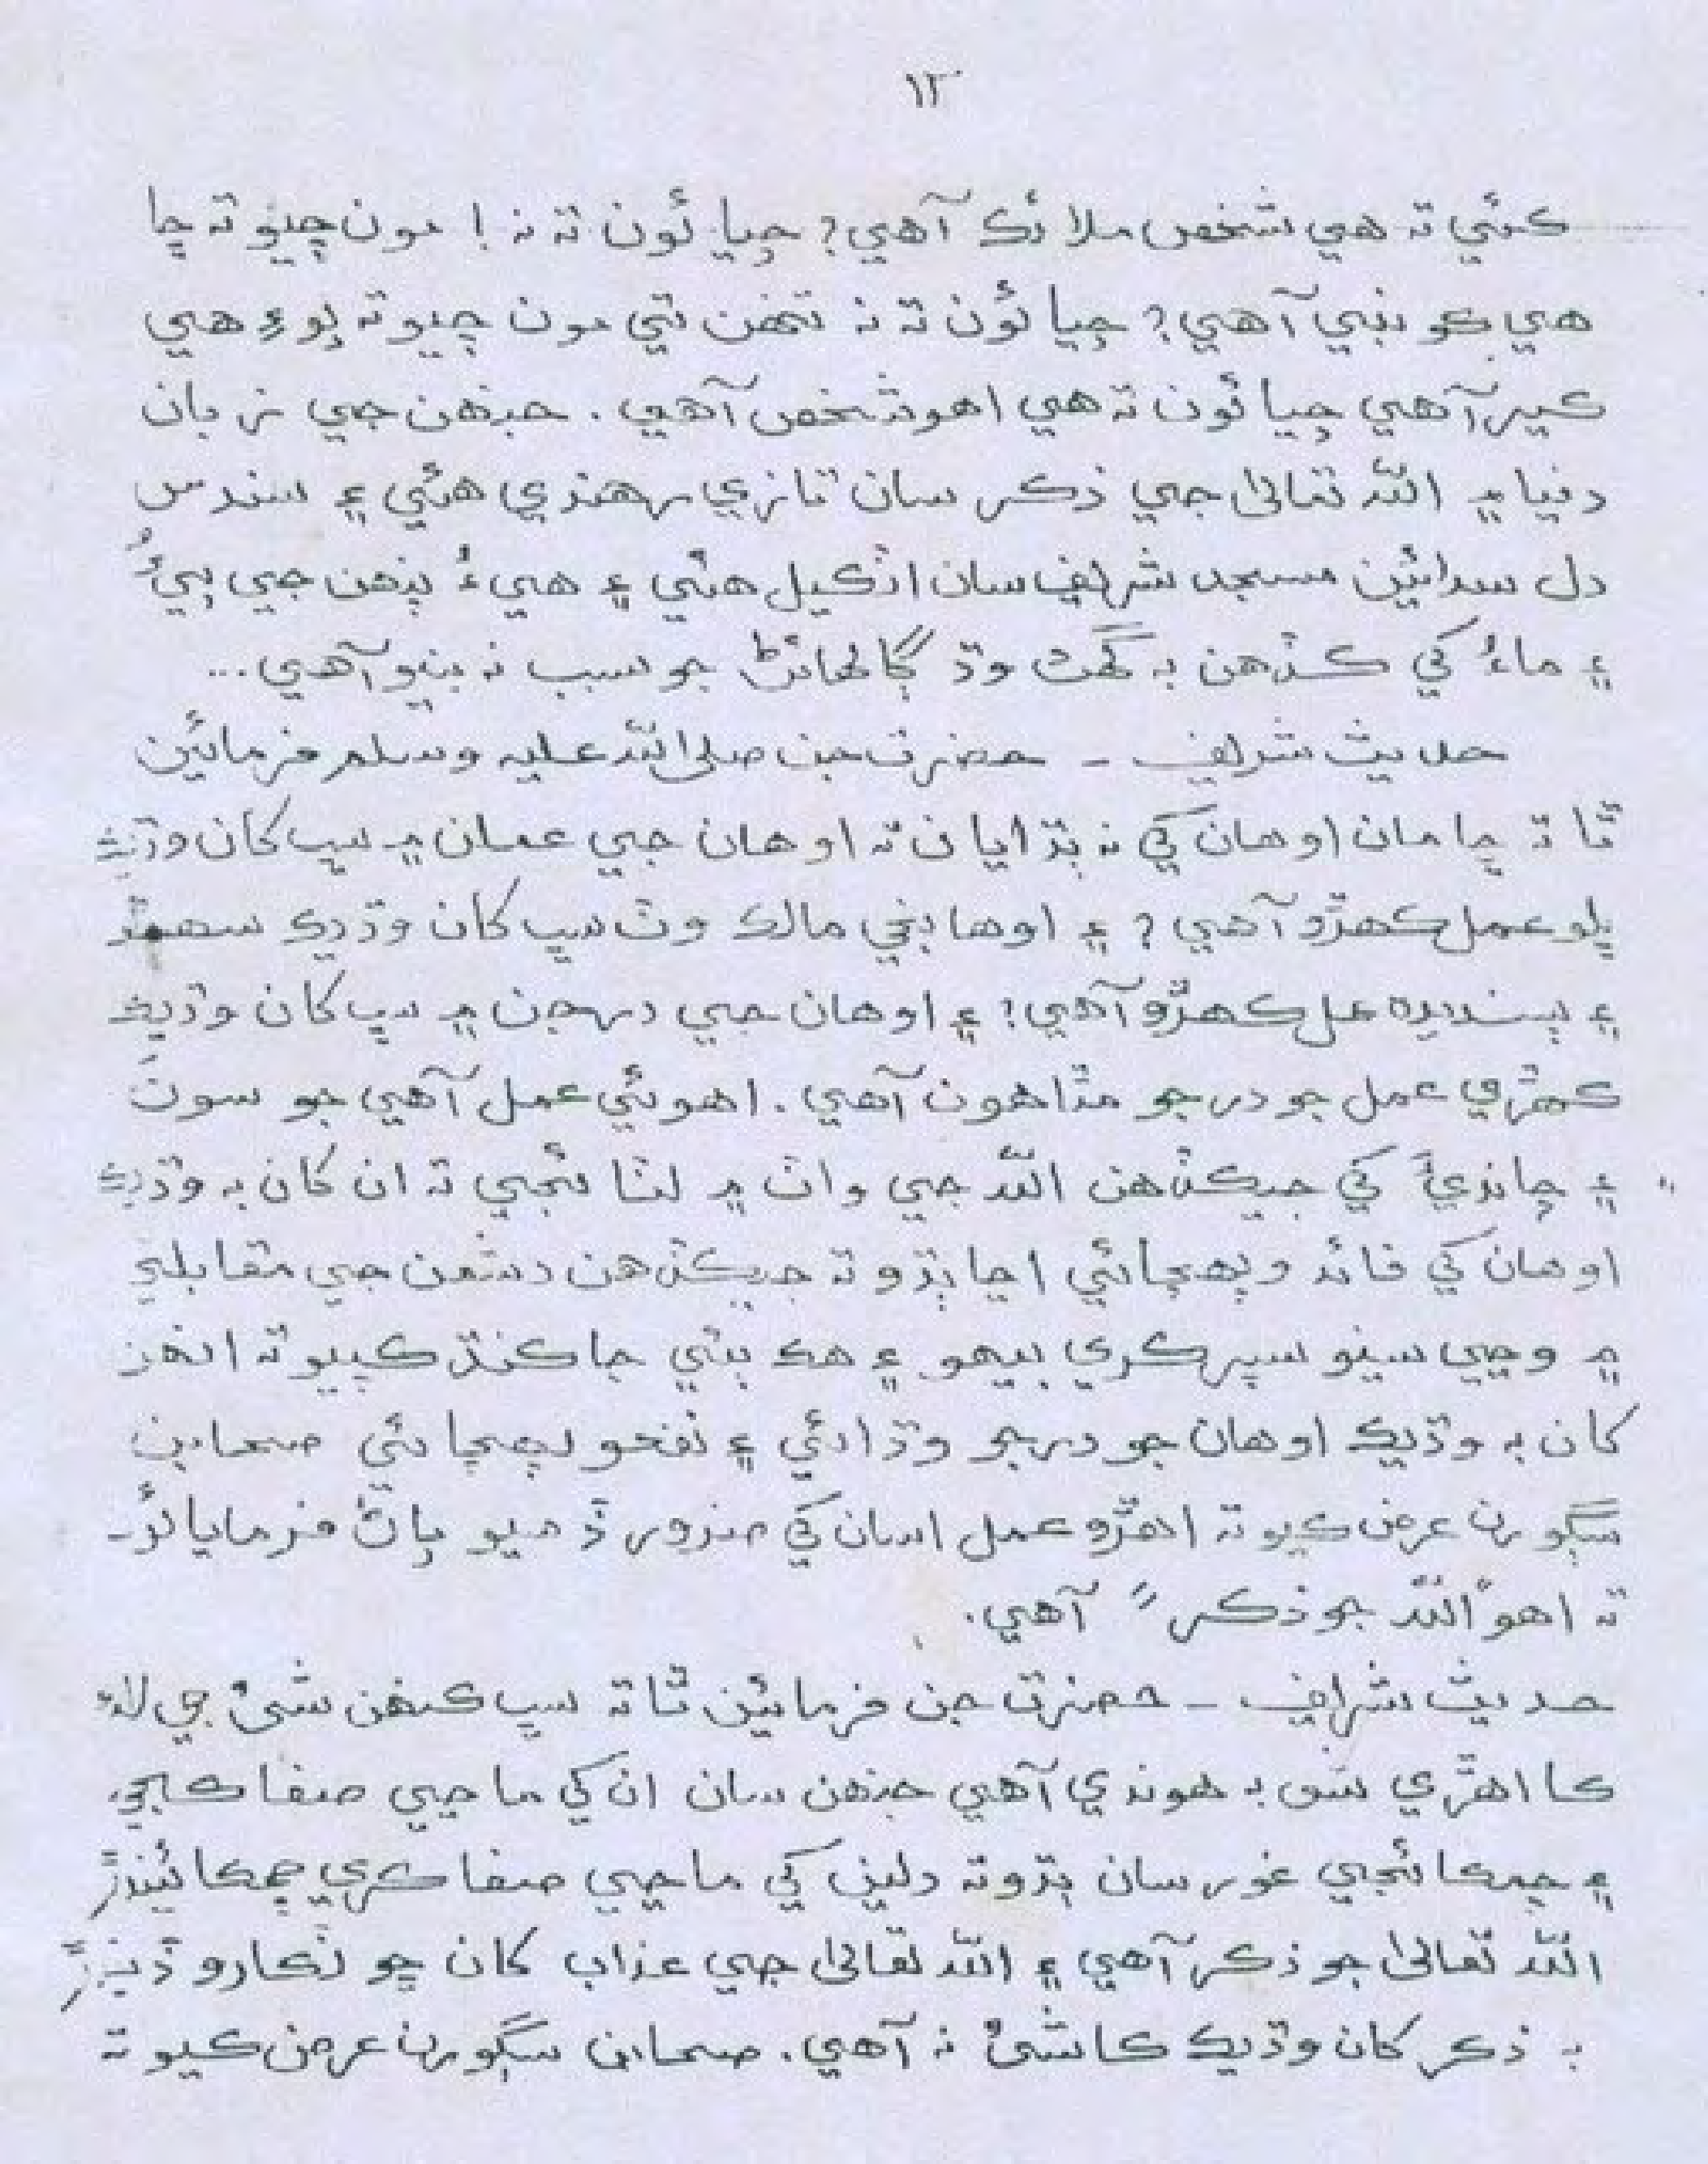 ١٣
ڪئي ته هي شخص ملائڪ آهي؟ چيائون ته نه! مون چيو ته ڇا
هي ڪو نبي آهي؟ چيائون ته نه تنهن تي مون چيو ته پوءِ هي
ڪير آهي چيائون ته هي اهو شخص آهي. جنهن جي زبان
دنيا ۾ الله تعاليٰ جي ذڪر سان تازي رهندي هئي ۽ سندس
دل سدائين مسجد شريف سان اٽڪيل هئي ۽ هيءُ پنهن جي پيءُ
۽ ماءُ کي ڪڏهن به گهٽ وڌ ڳالهائڻ جو سبب نه بنيو آهي...
حديث شريف - حضرت جن صلي الله عليه وسلم فرمائين
ٿا ته ڇا مان اوهان کي نه ٻڌايان ته اوهان جي عملن ۾ سڀ کان وڌيڪ
ڀلو عمل ڪهڙو آهي؟ ۽ اوهانجي مالڪ وٽ سڀ کان وڌيڪ
۽ پسنديده عمل ڪهڙو آهي؟ ۽ اوهان جي درجن ۾ سڀ کان وڌيڪ
ڪهڙي عمل جو درجو مٿاهون آهي. اهو ئي عمل آهي جو سون
۽ چانديءَ کي جيڪڏهن الله جي واٽ ۾ لٽائجي ته ان کان به وڌيڪ
اوهان کي فائدو پهچائي اڃا ٻڌو ته جيڪڏهن دشمن جي مقابلي
۾ وڃي سينو سپر ڪري بيهو ۽ هڪ ٻئي جا ڪنڌ ڪپيو ته انهن
کان به وڌيڪ اوهان جو درجو وڌائي ۽ نفعو پهچائي صحابن
سڳورن عرض ڪيو ته اهڙو عمل اسان کي ضرور ڏسيو پاڻ فرمايائون
ته اهو "الله جو ذڪر" آهي.
حديث شريف - حضرت جن فرمائين ٿا ته سڀ ڪنهن شيءِ جي لاءِ
ڪا اهڙي شيءِ به هوندي آهي جنهن سان ان کي ماڃي صفا ڪجي
۽ چمڪائجي غور سان ٻڌو ته دلين کي ماڃي صفا ڪري چمڪائيندڙ
الله تعاليٰ جو ذڪر آهي ۽ الله تعاليٰ جي عذاب کان ڇوٽڪارو ڏيندڙ
به ذڪر کان وڌيڪ ڪا شيءِ نه آهي. صحابن سڳورن عرض ڪيو ته